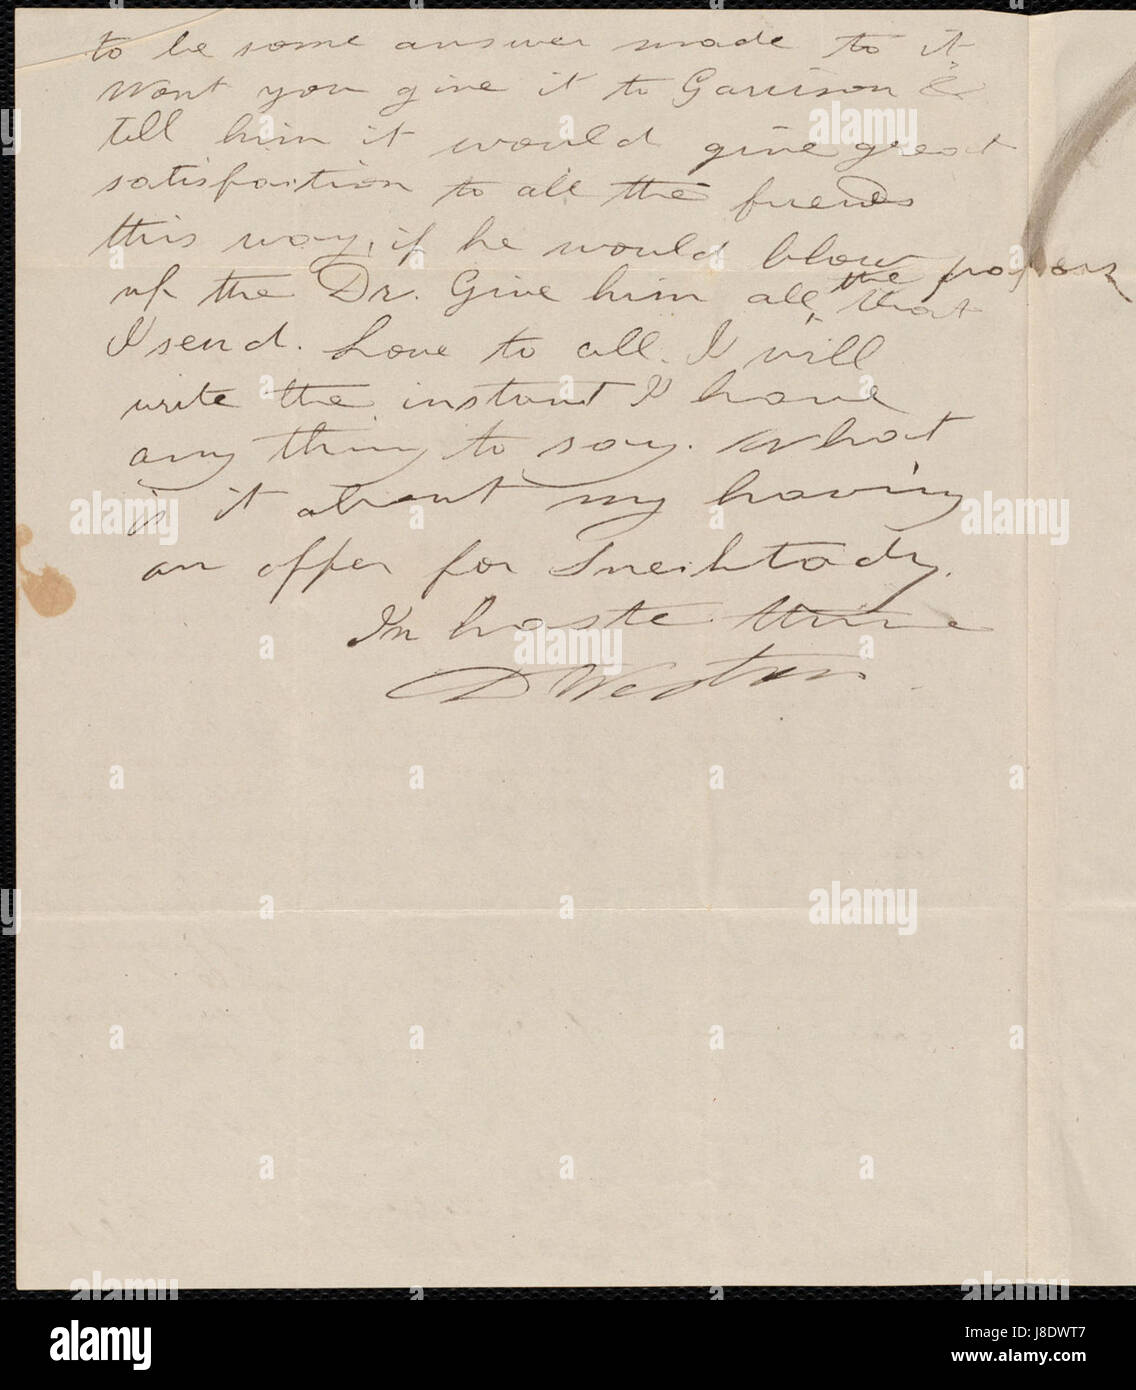 to be some answer made to it
Wont you give it to Garrison &
tell him it would give great
satisfaction to all the friends
this way, if he would blow
up the Dr. Give him all the papers that
I send. Love to all. I will
write the instant I have
any thing to say. What
is it about my having
an offer for Sneihtady.
In haste thine
D Weston
alamy
Image ID: J8DWT7
www.alamy.com